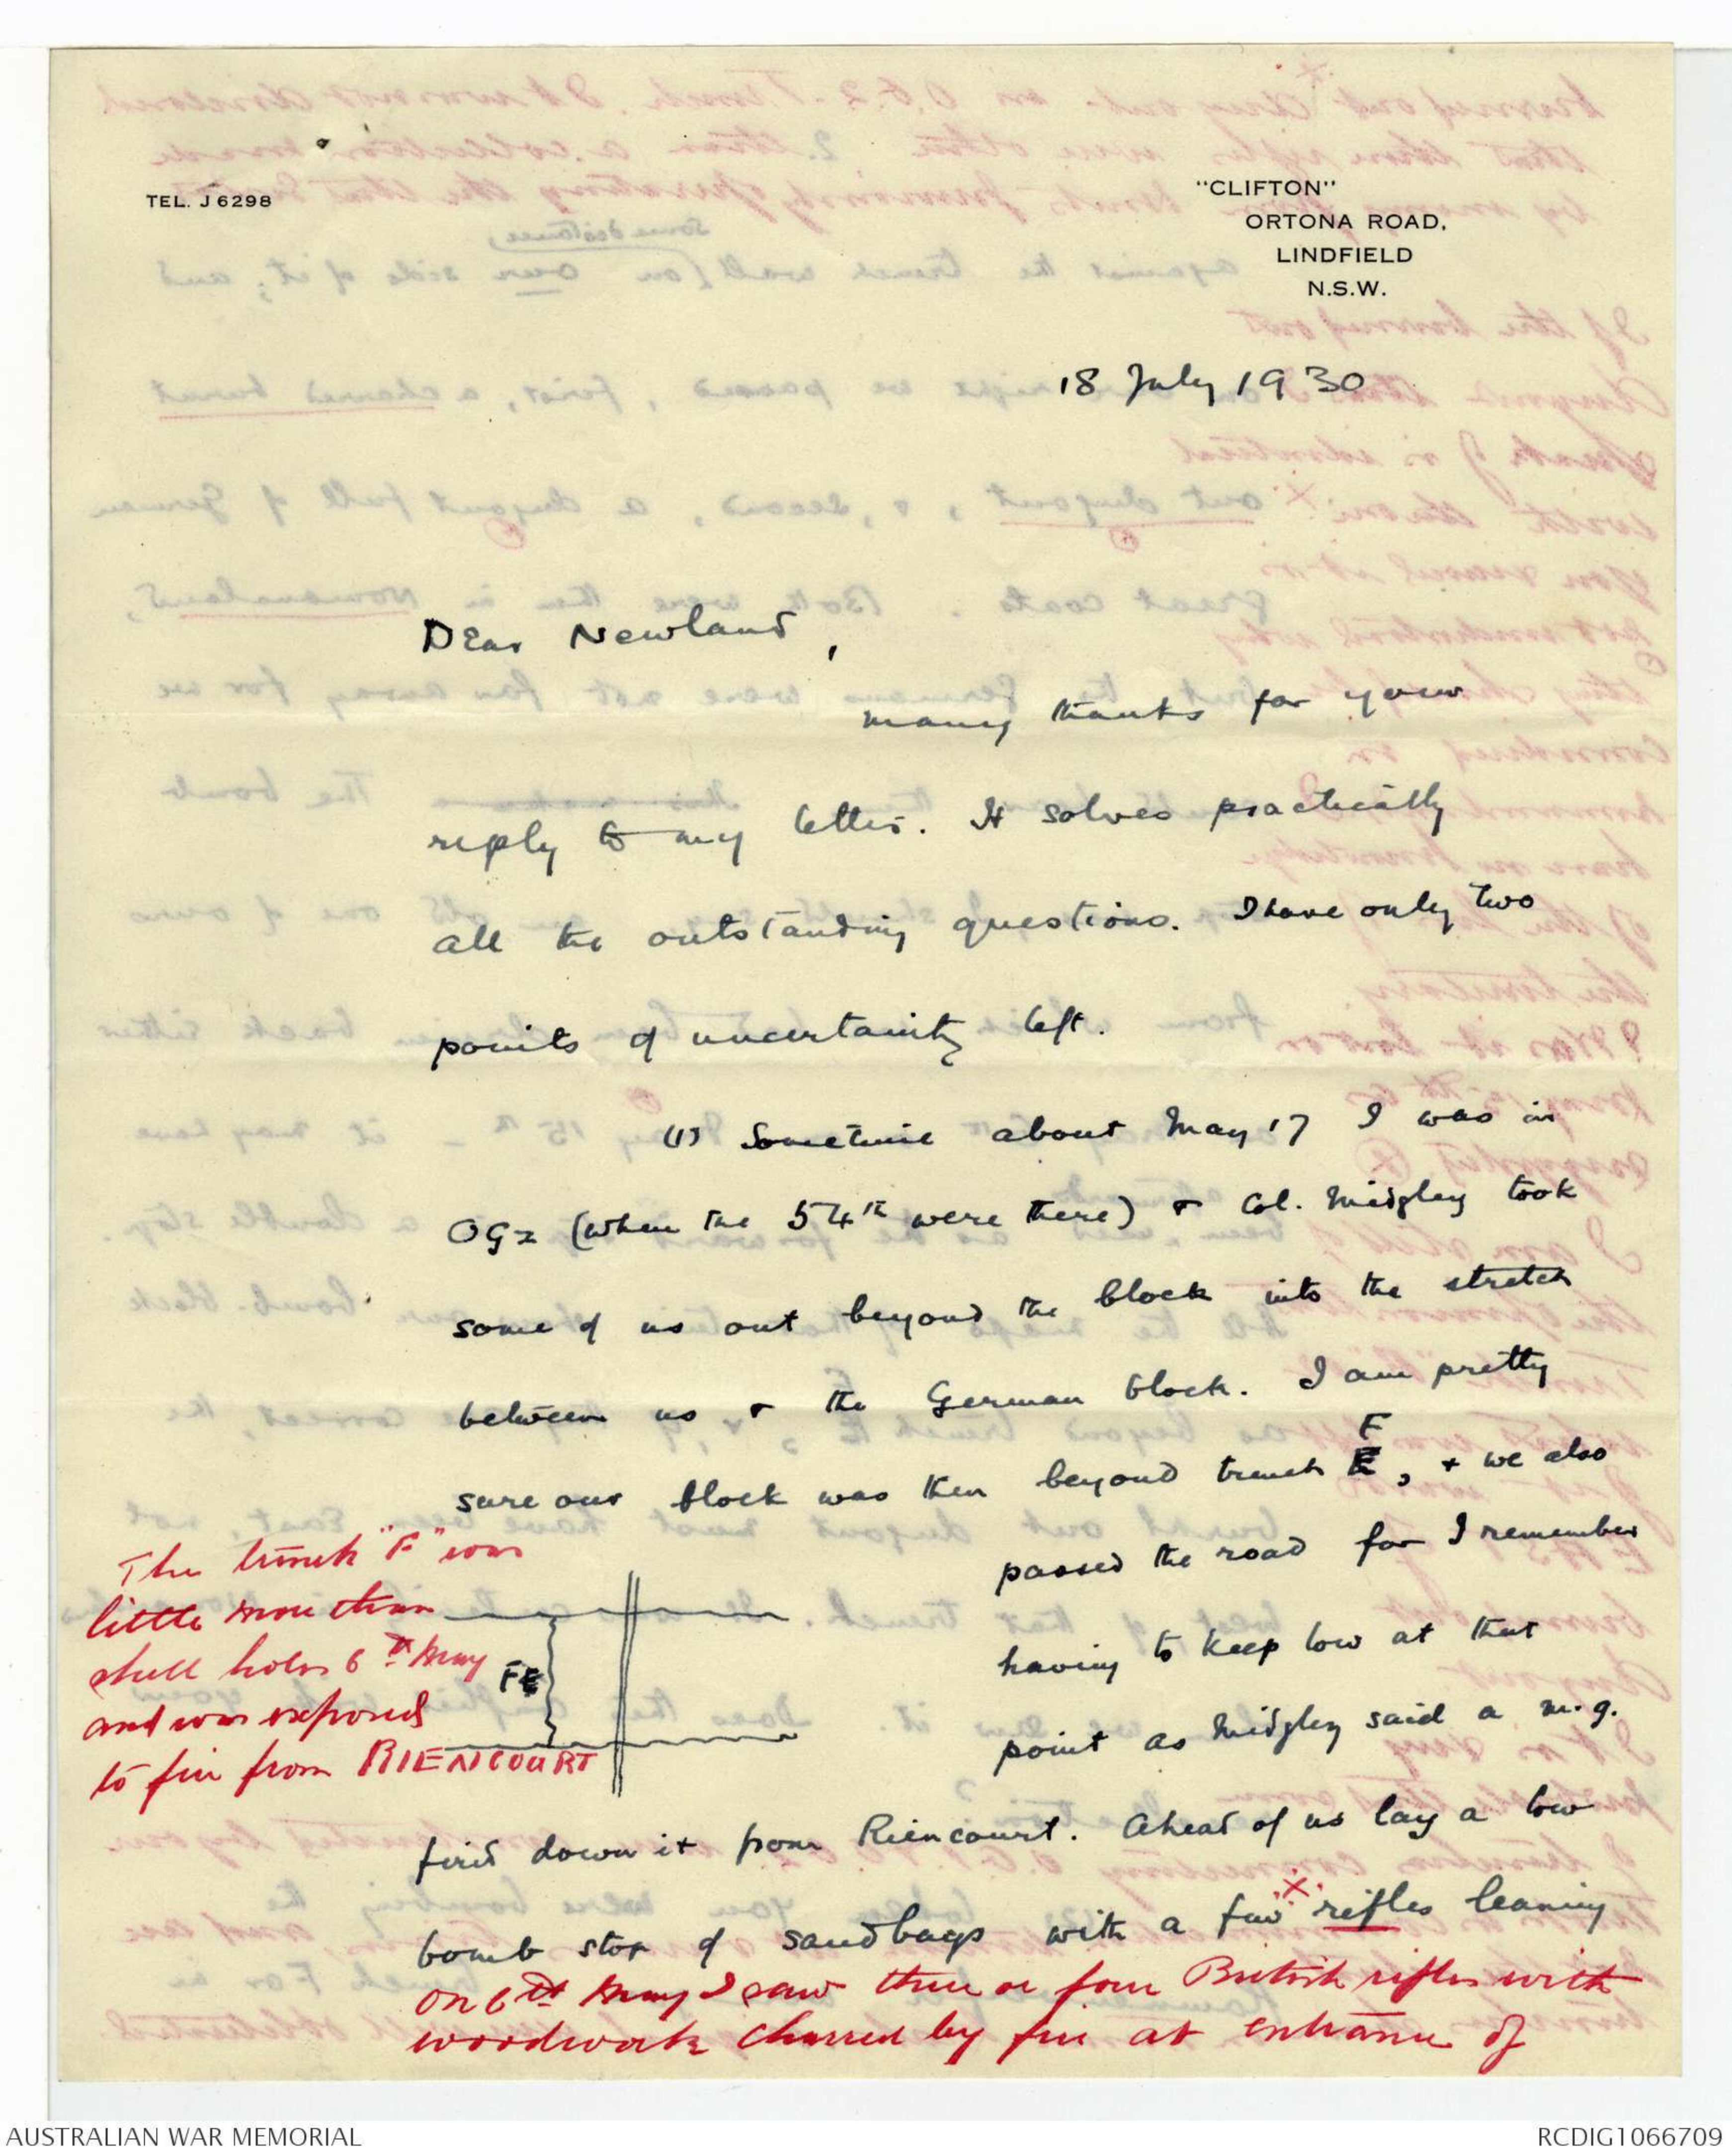 TEL. J 6298
"CLIFTON"
ORTONA ROAD,
LINDFIELD
N.S.W.
18 July 1930
Dear Newland,
many thanks for your
reply to my letter. It solves practically
all the outstanding questions. I have only two
points of uncertainty left.
(1) Sometime about May 17 I was in
OG2 (when the 54th were there) & Col. Midgley took
some of us out beyond the block into the stretch
between us & the German block. I am pretty
F
sure our block was then beyond trench E, & we also
passed the road for I remember
having to keep low at that
point as Midgley said a m.g.
The trench "F" was
little more than
shell holes 6th May
and was exposed
to fire from RIENCOURT
FE
fired down it from Riencourt. Ahead of us lay a low
bomb stop of sandbags with a few "X" rifles leaning
On 6th May I saw three or four British rifles with
woodwork charred by fire at entrance of
AUSTRALIAN WAR MEMORIAL
RCDIG1066709